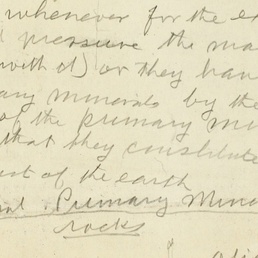 whenever for the
pressure the ma
with it) or they hav
ary minerals by the
of the primary mi
that they constitute
st of the earth
al. Primary Min
rocks